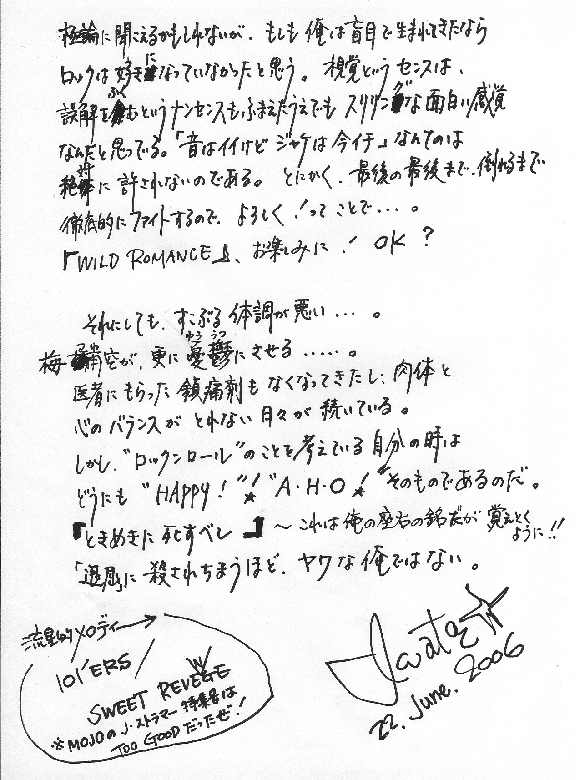 極論に聞こえるかもしれないが、もしも俺は盲目で生まれてきたなら
ロックは好きになっていなかったと思う。視覚というセンスは、
誤解をふくむというナンセンスもふまえたうえでもスリリングな面白い感覚
なんだと思ってる。「音はイイけどジャケは今イチ」なんてのは
絶対に許されないのである。とにかく、最後の最後まで、倒れるまで
徹底的にファイトするので、よろしく!ってことで…。
『WILD ROMANCE』、お楽しみに! OK?
それにしても、すこぶる体調が悪い…。
梅雨空が、更に憂鬱にさせる……。
ゆううつ
医者にもらった鎮痛剤もなくなってきたし、肉体と
心のバランスがとれない日々が続いている。
しかし、"ロックンロール"のことを考えている自分の時は
どうにも"HAPPY!"!"A・H・O!"そのものであるのだ。
『ときめきに死すべし』~これは俺の座右の銘だが覚えとく
ように!!
「退屈に一殺されちまうほど、ヤワな俺ではない。
流星的メロディー
101'ERS
SWEET REVEGE
※MOJOのJ・ストラマー特集号は
TOO GOODだったぜ!
22. June. 2006